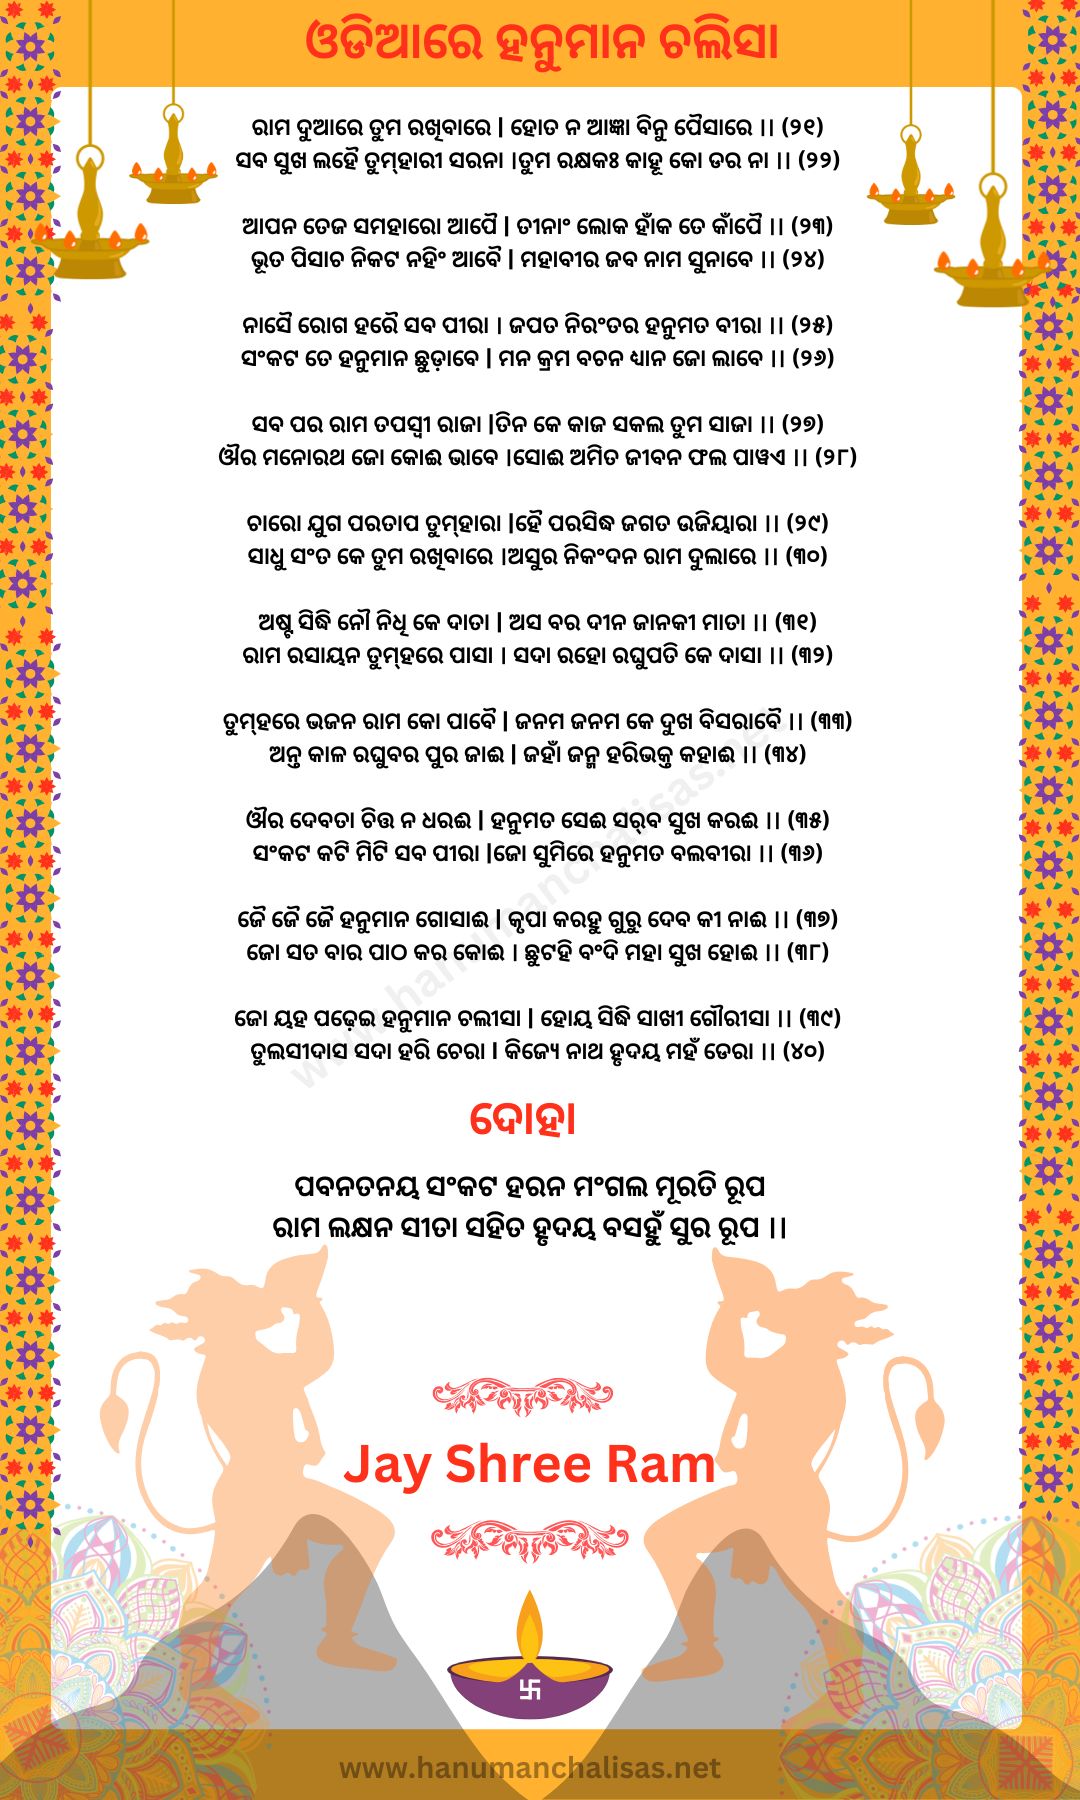 ଓଡିଆରେ ହନୁମାନ ଚଲିସା
ରାମ ଦୁଆରେ ତୁମ ରଖିବାରେ | ହୋତ ନ ଆଜ୍ଞା ବିନୁ ପୈସାରେ ।। (୨୧)
ସବ ସୁଖ ଲହୈ ତୁମ୍‌ହାରୀ ସରନା ।ତୁମ ରକ୍ଷକଃ କାହୂ କୋ ଡର ନା ।। (୨୨)
ଆପନ ତେଜ ସମହାରୋ ଆପୈ | ତୀନାଂ ଲୋକ ହାଁକ ତେ କାଁପୈ ।। (୨୩)
ଭୂତ ପିସାଚ ନିକଟ ନହିଂ ଆବୈ | ମହାବୀର ଜବ ନାମ ସୁନାବେ ।। (୨୪)
ନାସୈ ରୋଗ ହରୈ ସବ ପୀରା । ଜପତ ନିରଂତର ହନୁମତ ବୀରା ।। (୨୫)
ସଂକଟ ତେ ହନୁମାନ ଛୁଡ଼ାବେ | ମନ କ୍ରମ ବଚନ ଧ୍ୟାନ ଜୋ ଲାବେ ।। (୨୬)
ସବ ପର ରାମ ତପସ୍ୱୀ ରାଜା |ତିନ କେ କାଜ ସକଲ ତୁମ ସାଜା ।। (୨୭)
ଔର ମନୋରଥ ଜୋ କୋଈ ଭାବେ ।ସୋଈ ଅମିତ ଜୀବନ ଫଲ ପାୱଏ ।। (୨୮)
ଚାରୋ ଯୁଗ ପରତାପ ତୁମ୍‌ହାରା |ହୈ ପରସିଦ୍ଧ ଜଗତ ଉଜିୟାରା ।। (୨୯)
ସାଧୁ ସଂତ କେ ତୁମ ରଖିବାରେ ।ଅସୁର ନିକଂଦନ ରାମ ଦୁଲାରେ ।। (୩୦)
ଅଷ୍ଟ ସିଦ୍ଧି ନୌ ନିଧି କେ ଦାତା | ଅସ ବର ଦୀନ ଜାନକୀ ମାତା ।। (୩୧)
ରାମ ରସାୟନ ତୁମ୍‌ହରେ ପାସା । ସଦା ରହୋ ରଘୁପତି କେ ଦାସା ।। (୩୨)
ତୁମ୍‌ହରେ ଭଜନ ରାମ କୋ ପାବୈ | ଜନମ ଜନମ କେ ଦୁଖ ବିସରାବୈ ।। (୩୩)
ଅନ୍ତ କାଳ ରଘୁବର ପୁର ଜାଈ | ଜହାଁ ଜନ୍ମ ହରିଭକ୍ତ କହାଈ ।। (୩୪)
ଔର ଦେବତା ଚିତ୍ତ ନ ଧରଈ | ହନୁମତ ସେଈ ସର୍‌ବ ସୁଖ କରଈ ।। (୩୫)
ସଂକଟ କଟି ମିଟି ସବ ପୀରା |ଜୋ ସୁମିରେ ହନୁମତ ବଲବୀରା ।। (୩୬)
ଜୈ ଜୈ ଜୈ ହନୁମାନ ଗୋସାଈ | କୃପା କରହୁ ଗୁରୁ ଦେବ କୀ ନାଈ ।। (୩୭)
ଜୋ ସତ ବାର ପାଠ କର କୋଈ । ଛୁଟହି ବଂଦି ମହା ସୁଖ ହୋଈ ।। (୩୮)
ଜୋ ୟହ ପଢ଼େଇ ହନୁମାନ ଚଲୀସା | ହୋୟ ସିଦ୍ଧି ସାଖୀ ଗୌରୀସା ।। (୩୯)
ତୁଲସୀଦାସ ସଦା ହରି ଚେରା । କିଜ୍ୟେ ନାଥ ହୃଦୟ ମହଁ ଡେରା ।। (୪୦)
ଦୋହା
ପବନତନୟ ସଂକଟ ହରନ ମଂଗଲ ମୂରତି ରୂପ
ରାମ ଲକ୍ଷନ ସୀତା ସହିତ ହୃଦୟ ବସହୁଁ ସୁର ରୂପ ।।
www.hanumanchalisas.net
Jay Shree Ram
www.hanumanchalisas.net